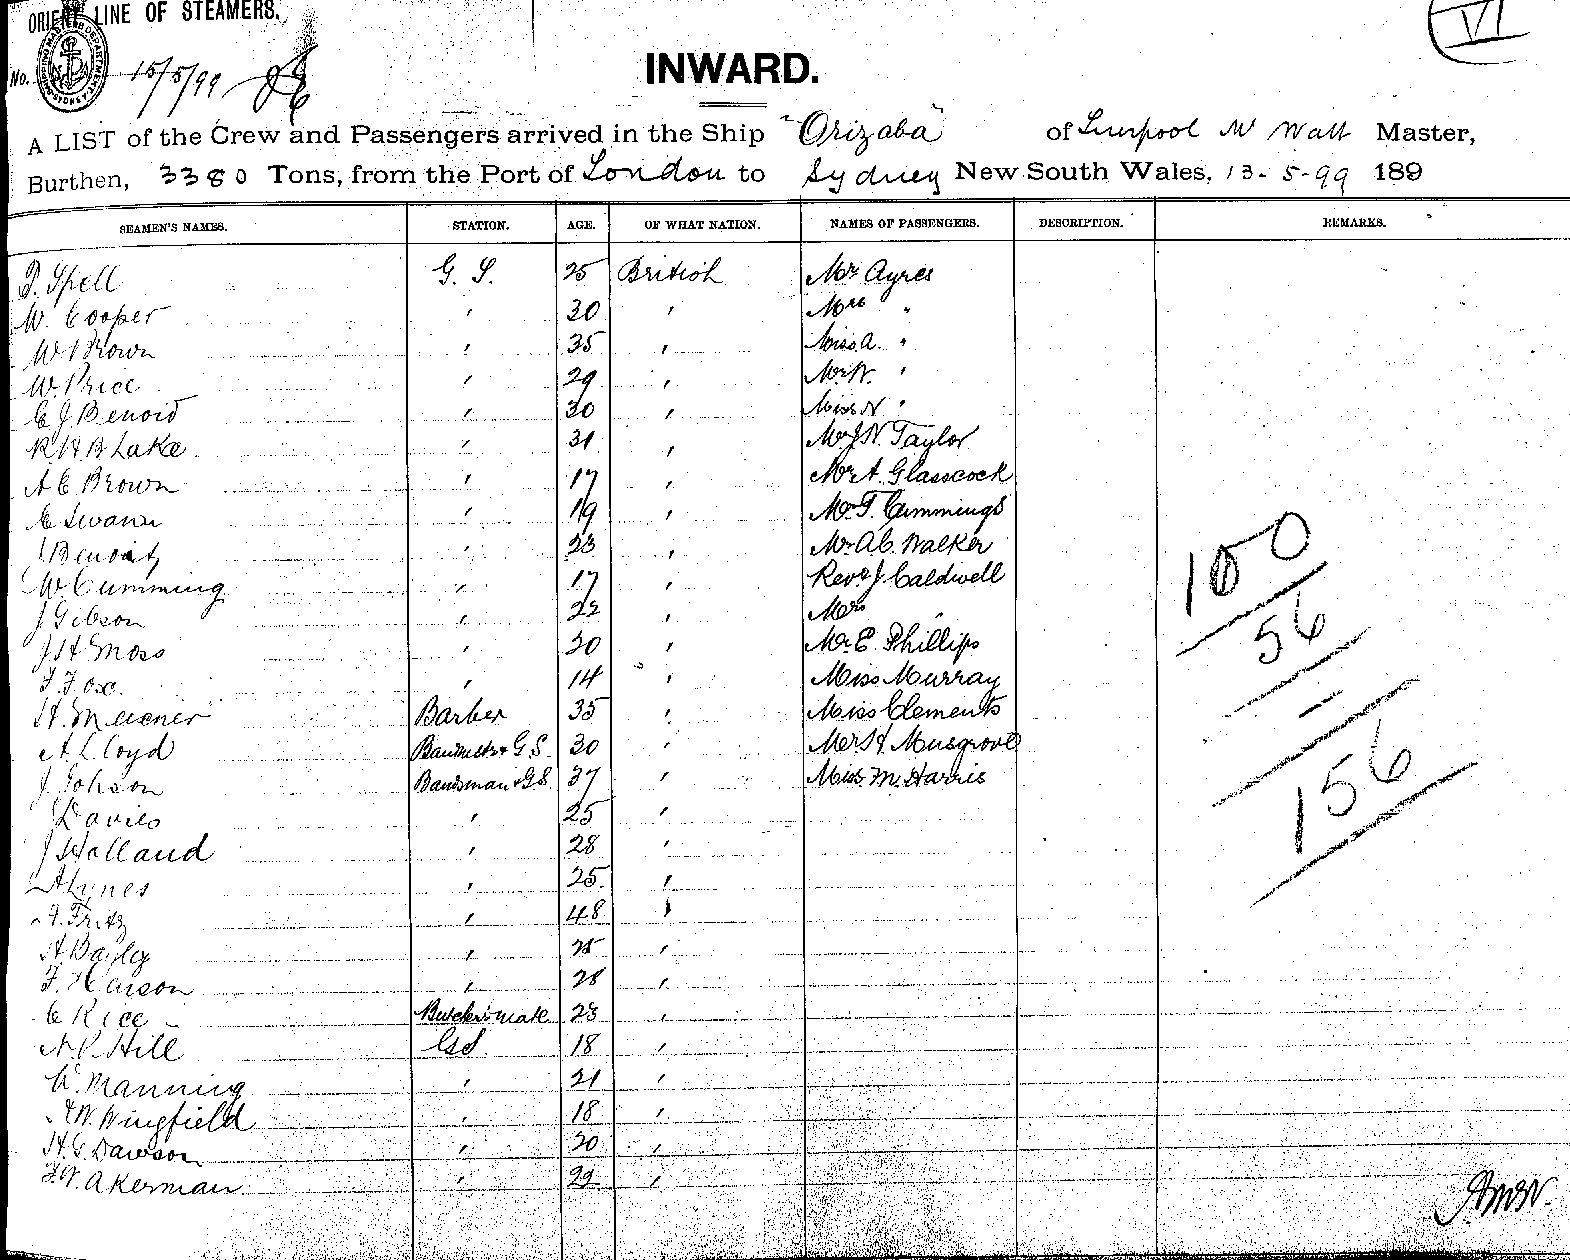 ORIENT LINE OF STEAMERS.
VI
No. 15/5/99
INWARD.
A LIST of the Crew and Passengers arrived in the Ship "Orizaba" of Liverpool Master,
Burthen, 3380 Tons, from the Port of London to Sydney New South Wales, 13-5-99 189
SEAMEN'S NAMES. STATION. AGE. OF WHAT NATION. NAMES OF PASSENGERS. DESCRIPTION. REMARKS.
Spell G. S. 25 British Mr Ayres
W. Cooper " 30 " Mrs "
W Brown " 35 " Miss A. "
W. Price " 29 " Mr W. "
C J. Benoid " 30 " Miss N "
R H B Lake " 31 " Mr J N. Taylor
A C Brown " 17 " Mr A. Glasscock
C Swann " 19 " Mr T. Cummings
J Benoitz " 23 " Mr A C. Walker
W Cumming " 17 " Revd J. Caldwell
J Gibson " 22 " Mrs "
J H Moss " 20 " Mr E. Phillips
F. Fox. " 14 " Miss Murray
H. Barber 35 " Miss Clements
A Lloyd G.S. 30 " Mr H. Musgrove
J. Johson Bandsman & G.S. 37 " Miss M. Harris
J Davies " 25 "
J Holland " 28 "
A Lynes " 25 "
F. Fritz " 48 "
H. Bayley " 25 "
F. Harson " 28 "
C Rice Butcher's mate 23 "
A. P. Hill GS. 18 "
W. Manning " 21 "
A W. Wingfield " 18 "
H. G. Dawson " 20 "
F. W. Akerman " 22 "
100
56
156